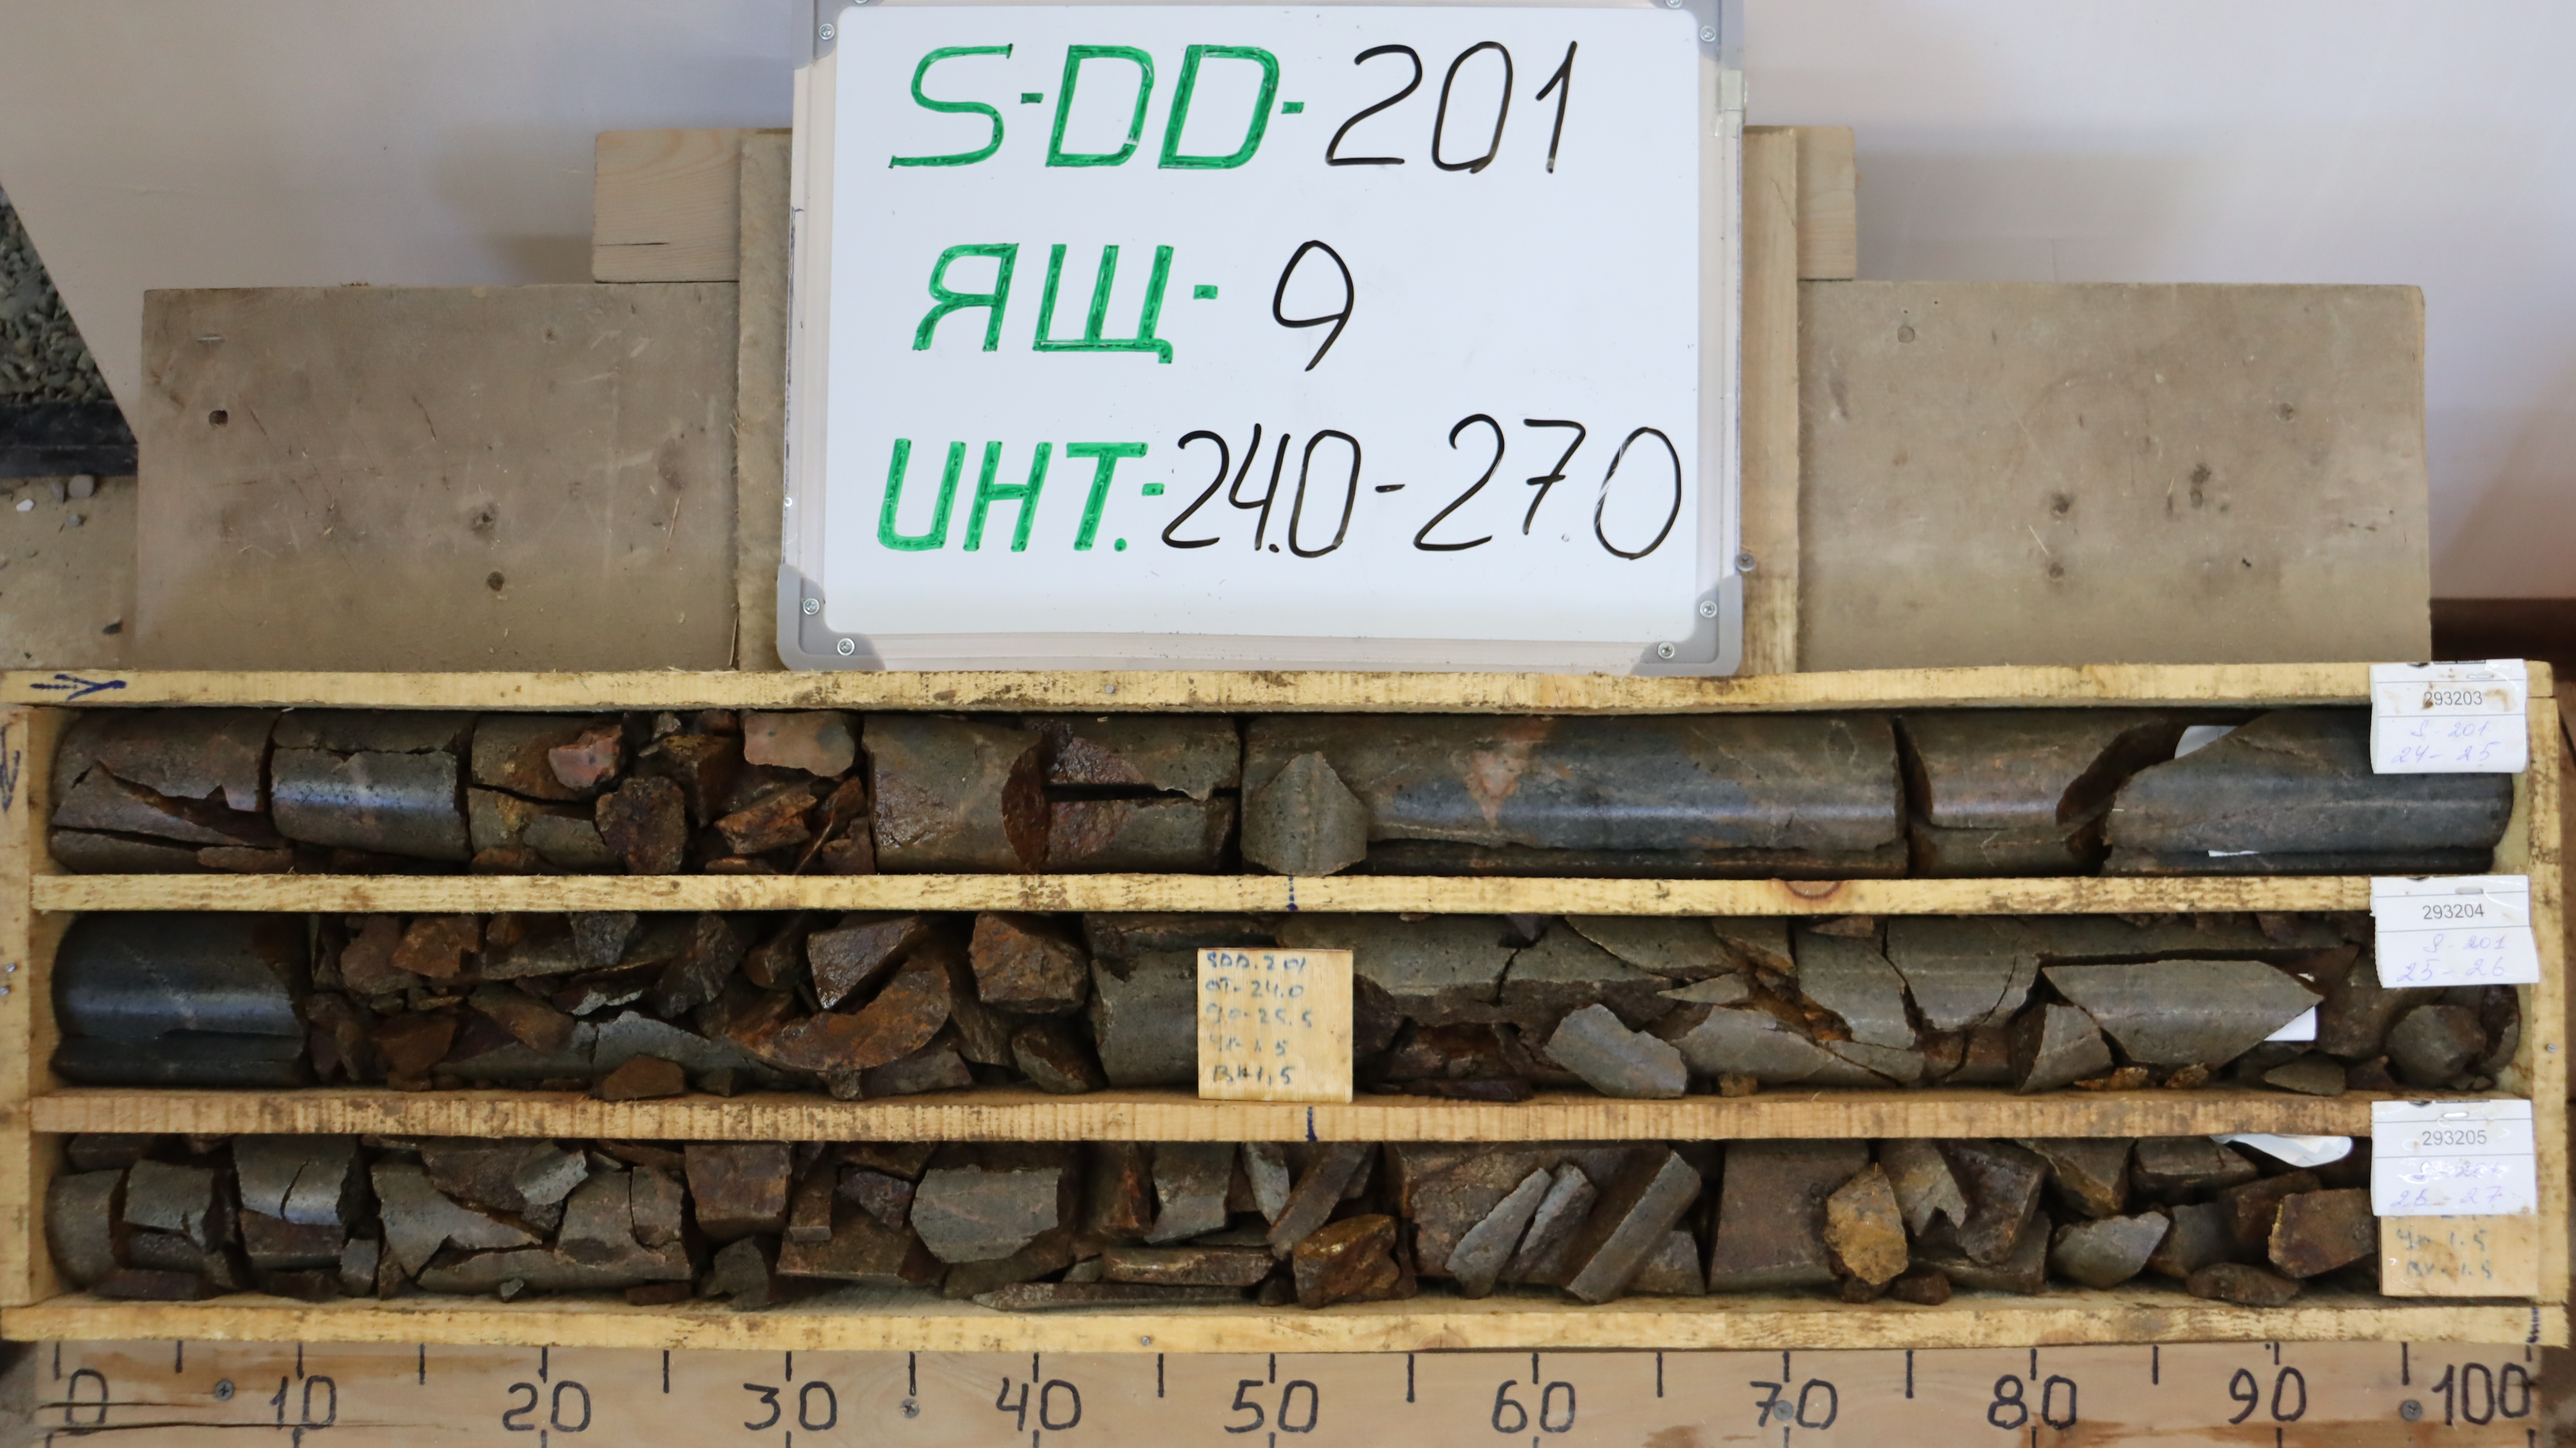 S-DD-201
ЯЩ- 9
ИНТ.-24.0-27.0
293203
S-201
24-25
293204
S-201
25-26
SDD.201
от-24.0
до-25.5
1.5
ВК1,5
293205
26-27
1.5
ВК-1.5
0 10 20 30 40 50 60 70 80 90 100